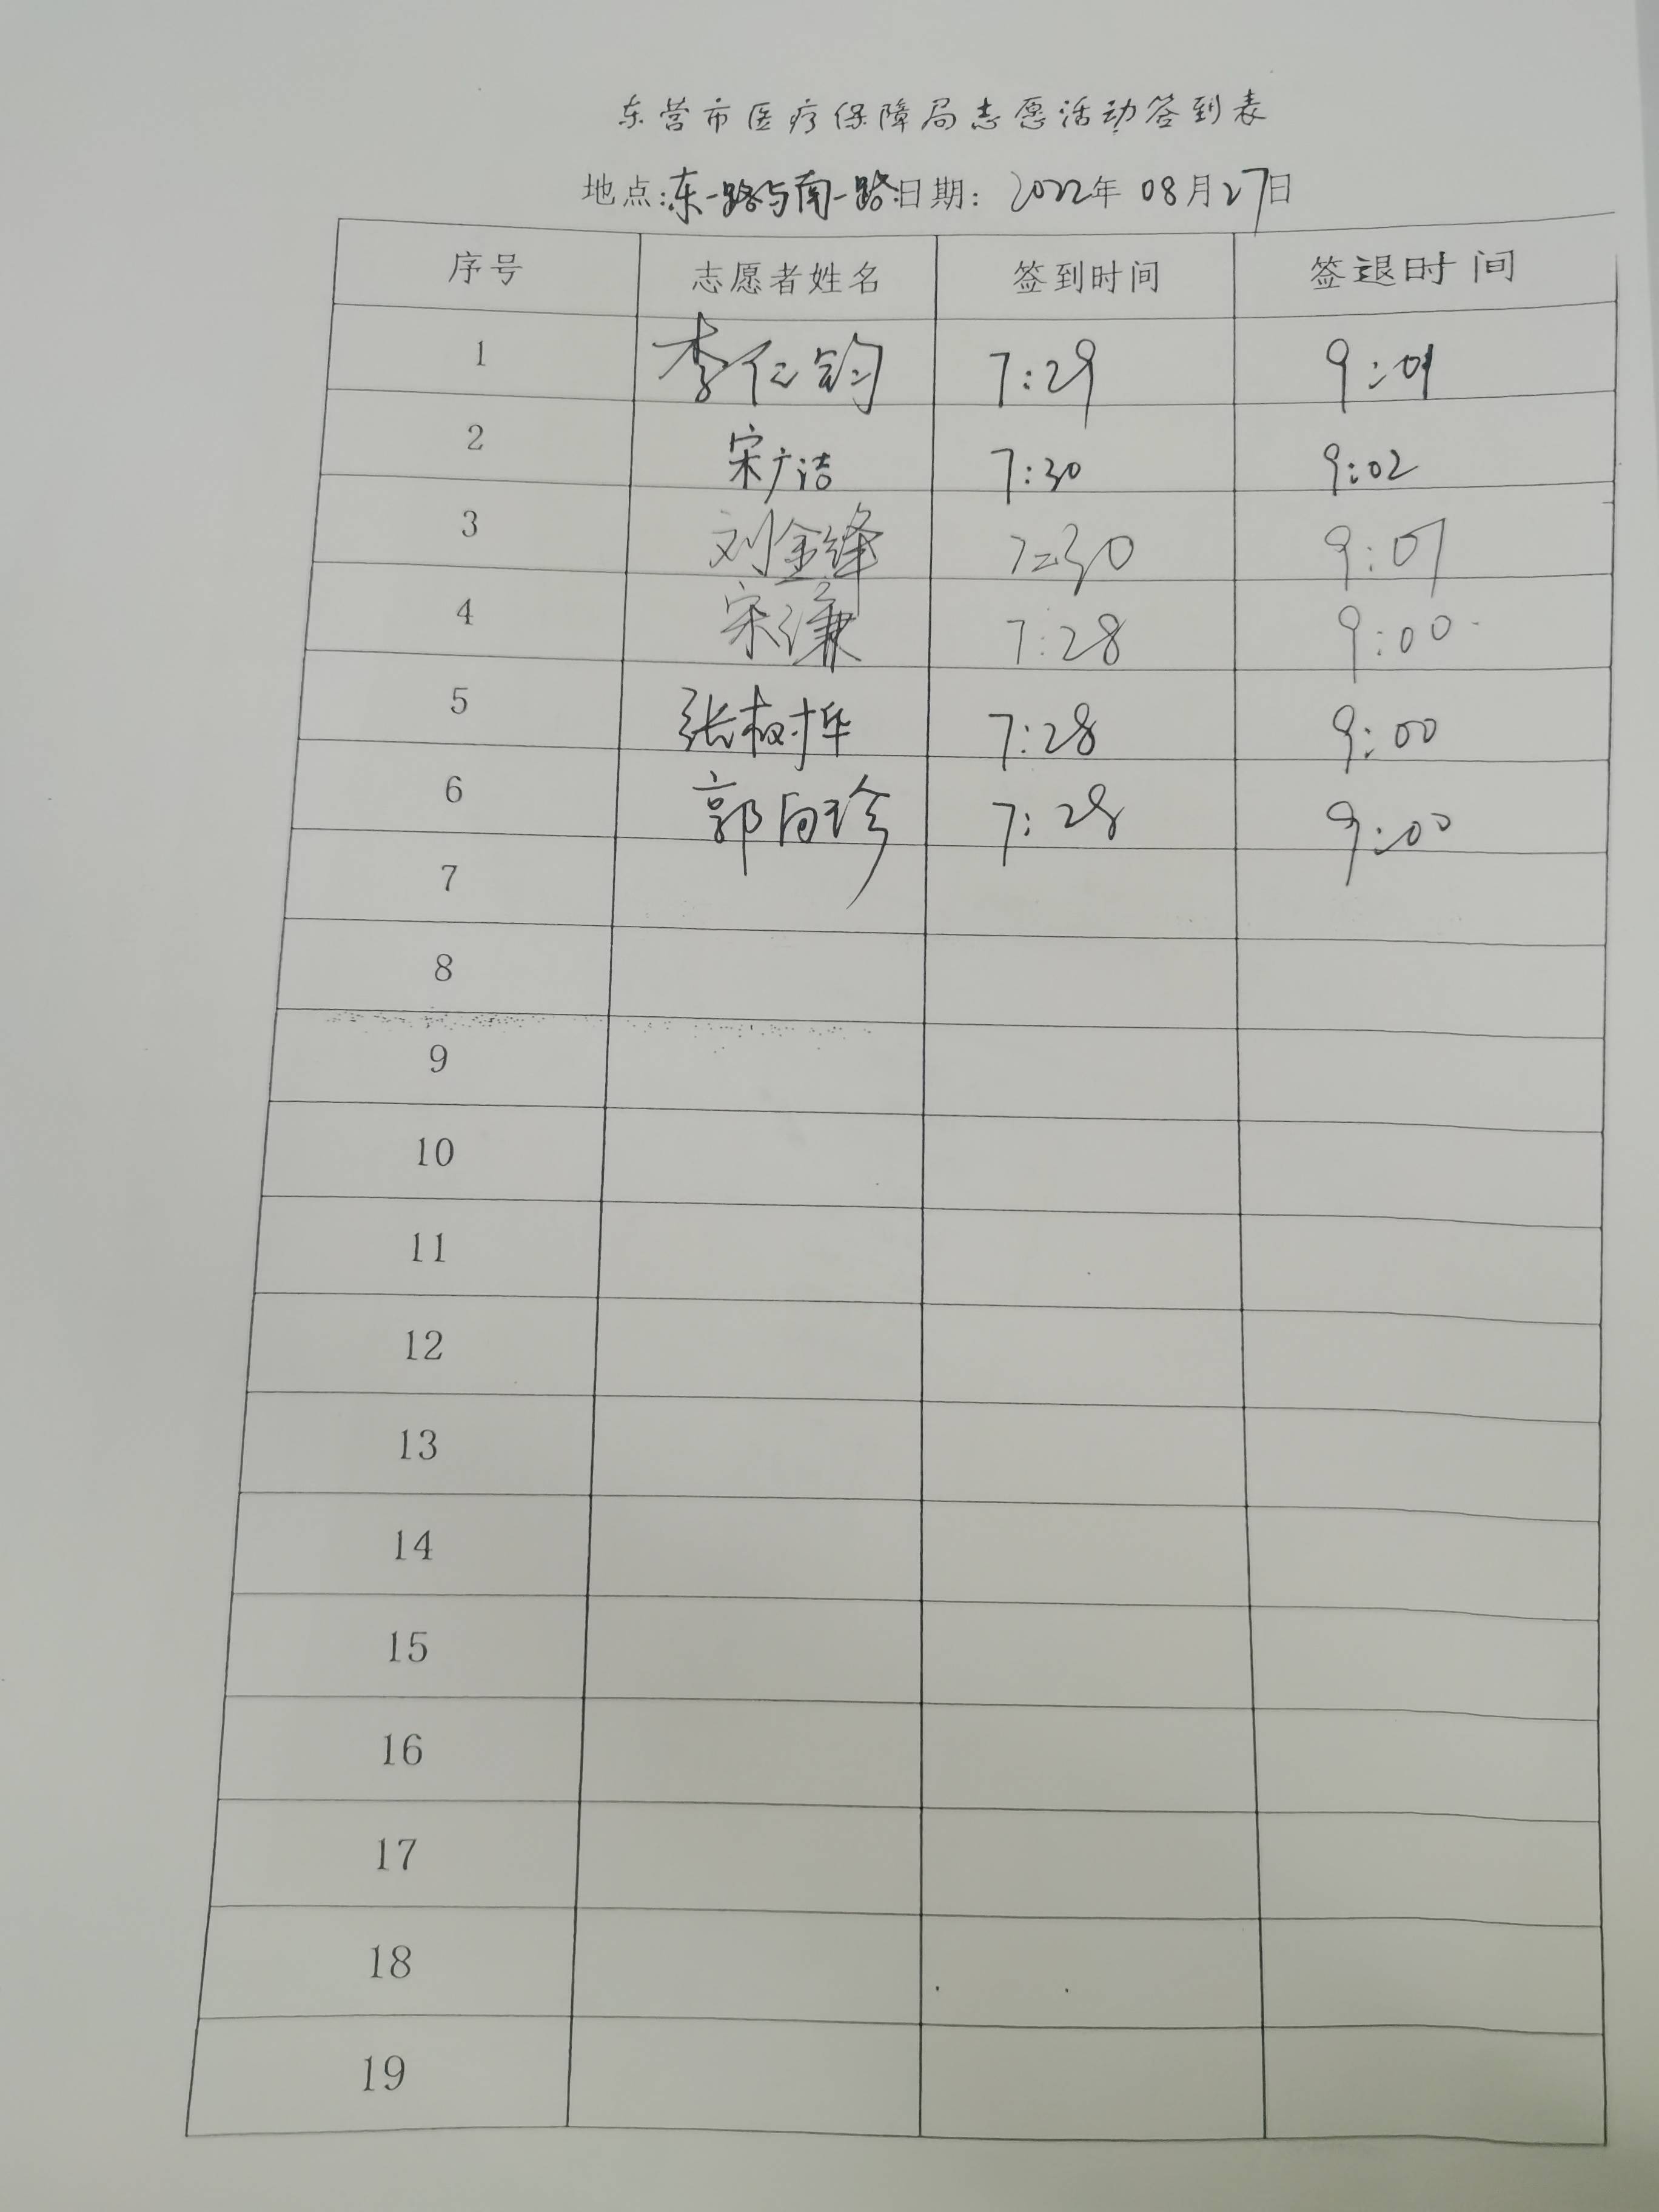 东营市医疗保障局志愿活动签到表
地点:东一路与南一路日期: 2022年08月27日
序号 志愿者姓名 签到时间 签退时间
1 李仁钧 7:29 9:01
2 宋广洁 7:30 9:02
3 刘金锋 7:30 9:01
4 宋濂 7:28 9:00
5 张树华 7:28 9:00
6 郭向珍 7:28 9:00
7
8
9
10
11
12
13
14
15
16
17
18
19